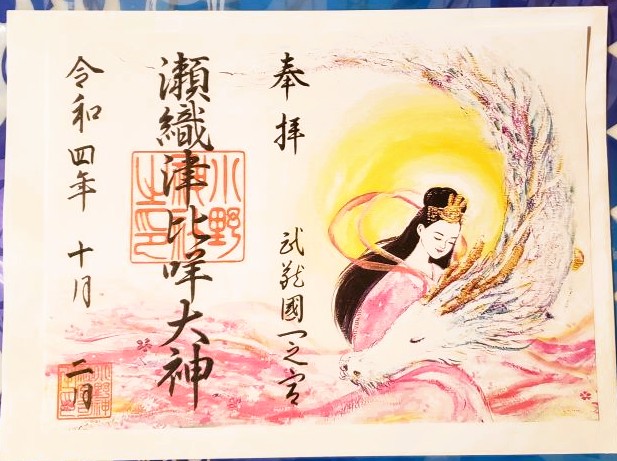 奉拝
武蔵國一之宮
瀬織津比咩大神
小野神社之印
令和四年 十月 二日